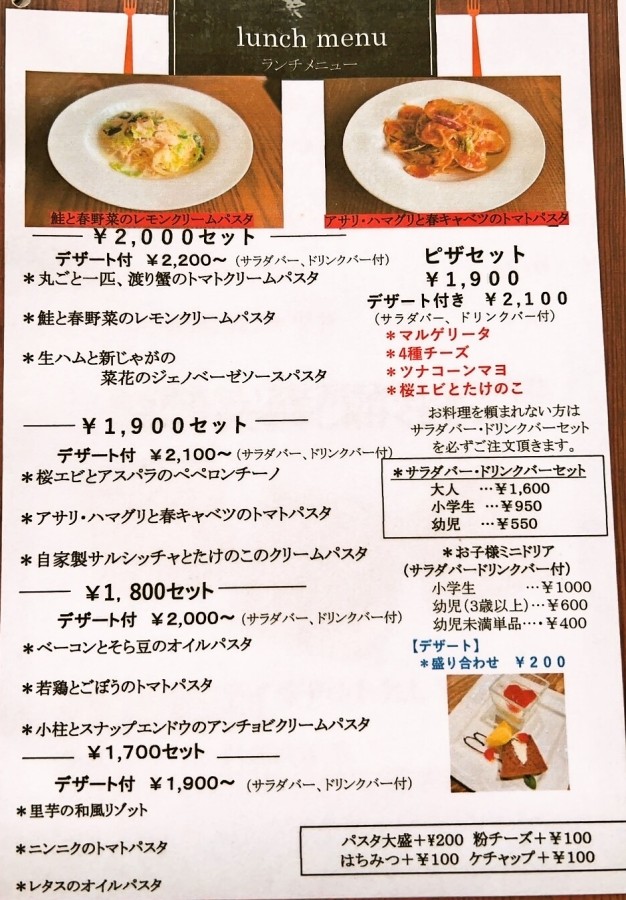 lunch menu
ランチメニュー
鮭と春野菜のレモンクリームパスタ
アサリ・ハマグリと春キャベツのトマトパスタ
￥2,000セット
デザート付 ￥2,200～ (サラダバー、ドリンクバー付)
＊丸ごと一匹、渡り蟹のトマトクリームパスタ
＊鮭と春野菜のレモンクリームパスタ
＊生ハムと新じゃがの
菜花のジェノベーゼソースパスタ
￥1,900セット
デザート付 ￥2,100～ (サラダバー、ドリンクバー付)
＊桜エビとアスパラのペペロンチーノ
＊アサリ・ハマグリと春キャベツのトマトパスタ
＊自家製サルシッチャとたけのこのクリームパスタ
￥1,800セット
デザート付 ￥2,000～ (サラダバー、ドリンクバー付)
＊ベーコンとそら豆のオイルパスタ
＊若鶏とごぼうのトマトパスタ
＊小柱とスナップエンドウのアンチョビクリームパスタ
￥1,700セット
デザート付 ￥1,900～ (サラダバー、ドリンクバー付)
＊里芋の和風リゾット
＊ニンニクのトマトパスタ
＊レタスのオイルパスタ
ピザセット
￥1,900
デザート付き ￥2,100
(サラダバー、ドリンクバー付)
＊マルゲリータ
＊4種チーズ
＊ツナコーンマヨ
＊桜エビとたけのこ
お料理を頼まれない方は
サラダバー・ドリンクバーセット
を必ずご注文頂きます。
＊サラダバー・ドリンクバーセット
大人 …￥1,600
小学生 …￥950
幼児 …￥550
＊お子様ミニドリア
(サラダバードリンクバー付)
小学生 …￥1000
幼児(3歳以上)…￥600
幼児未満単品…・￥400
【デザート】
＊盛り合わせ ￥200
パスタ大盛＋¥200 粉チーズ＋￥100
はちみつ＋￥100 ケチャップ＋￥100